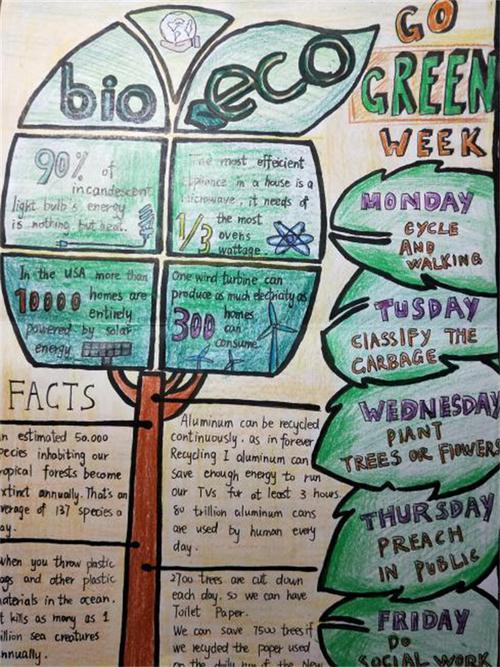 bio
eco
GO
GREEN
WEEK
90% of
incandescent
light bulb's energy
is nothing but heat.
The most effeicient
appliance in a house is a
Microwave, it needs of
1/3 the most
ovens
wattage.
In the USA more than
10000 homes are
entirely
powered by solar
energy
One wind turbine can
produce as much electricity as
300 homes
can
consume
MONDAY
CYCLE
AND
WALKING
TUSDAY
CLASSIFY THE
GARBAGE
WEDNESDAY
PLANT
TREES OR FLOWERS
THURSDAY
PREACH
IN PUBLIC
FRIDAY
DO
SOCIAL WORK
FACTS
n estimated 50.000
pecies inhabiting our
ropical forests become
xtinct annually. That's an
verage of 137 species a
ay.
when you throw plastic
ags and other plastic
aterials in the ocean.
t kills as many as 1
illion sea creatures
nnually.
Aluminum can be recycled
continuously. as in forever
Recycling 1 aluminum can
save enough energy to run
our TVs for at least 3 hours.
80 trillion aluminum cans
are used by human every
day.
2700 trees are cut down
each day. so we can have
Toilet Paper.
We can save 7500 trees if
we recyded the paper used
on the daily run of the New